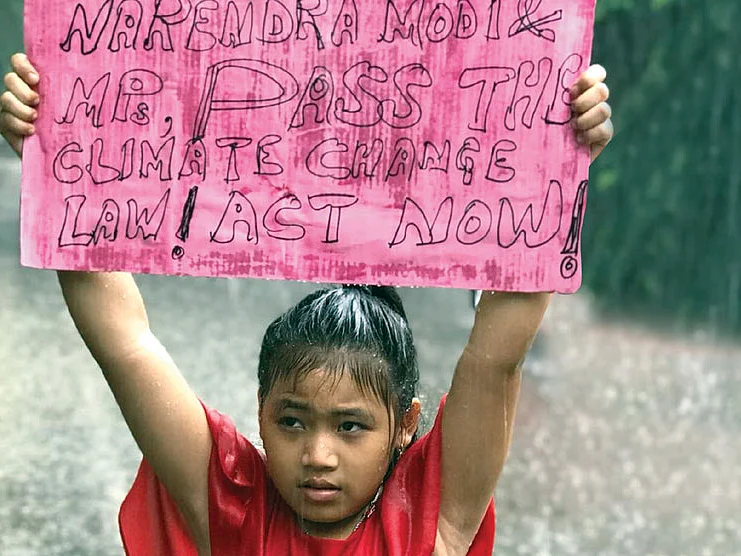 NARENDRA MODI &
MPs, PASS THE
CLIMATE CHANGE
LAW! ACT NOW!